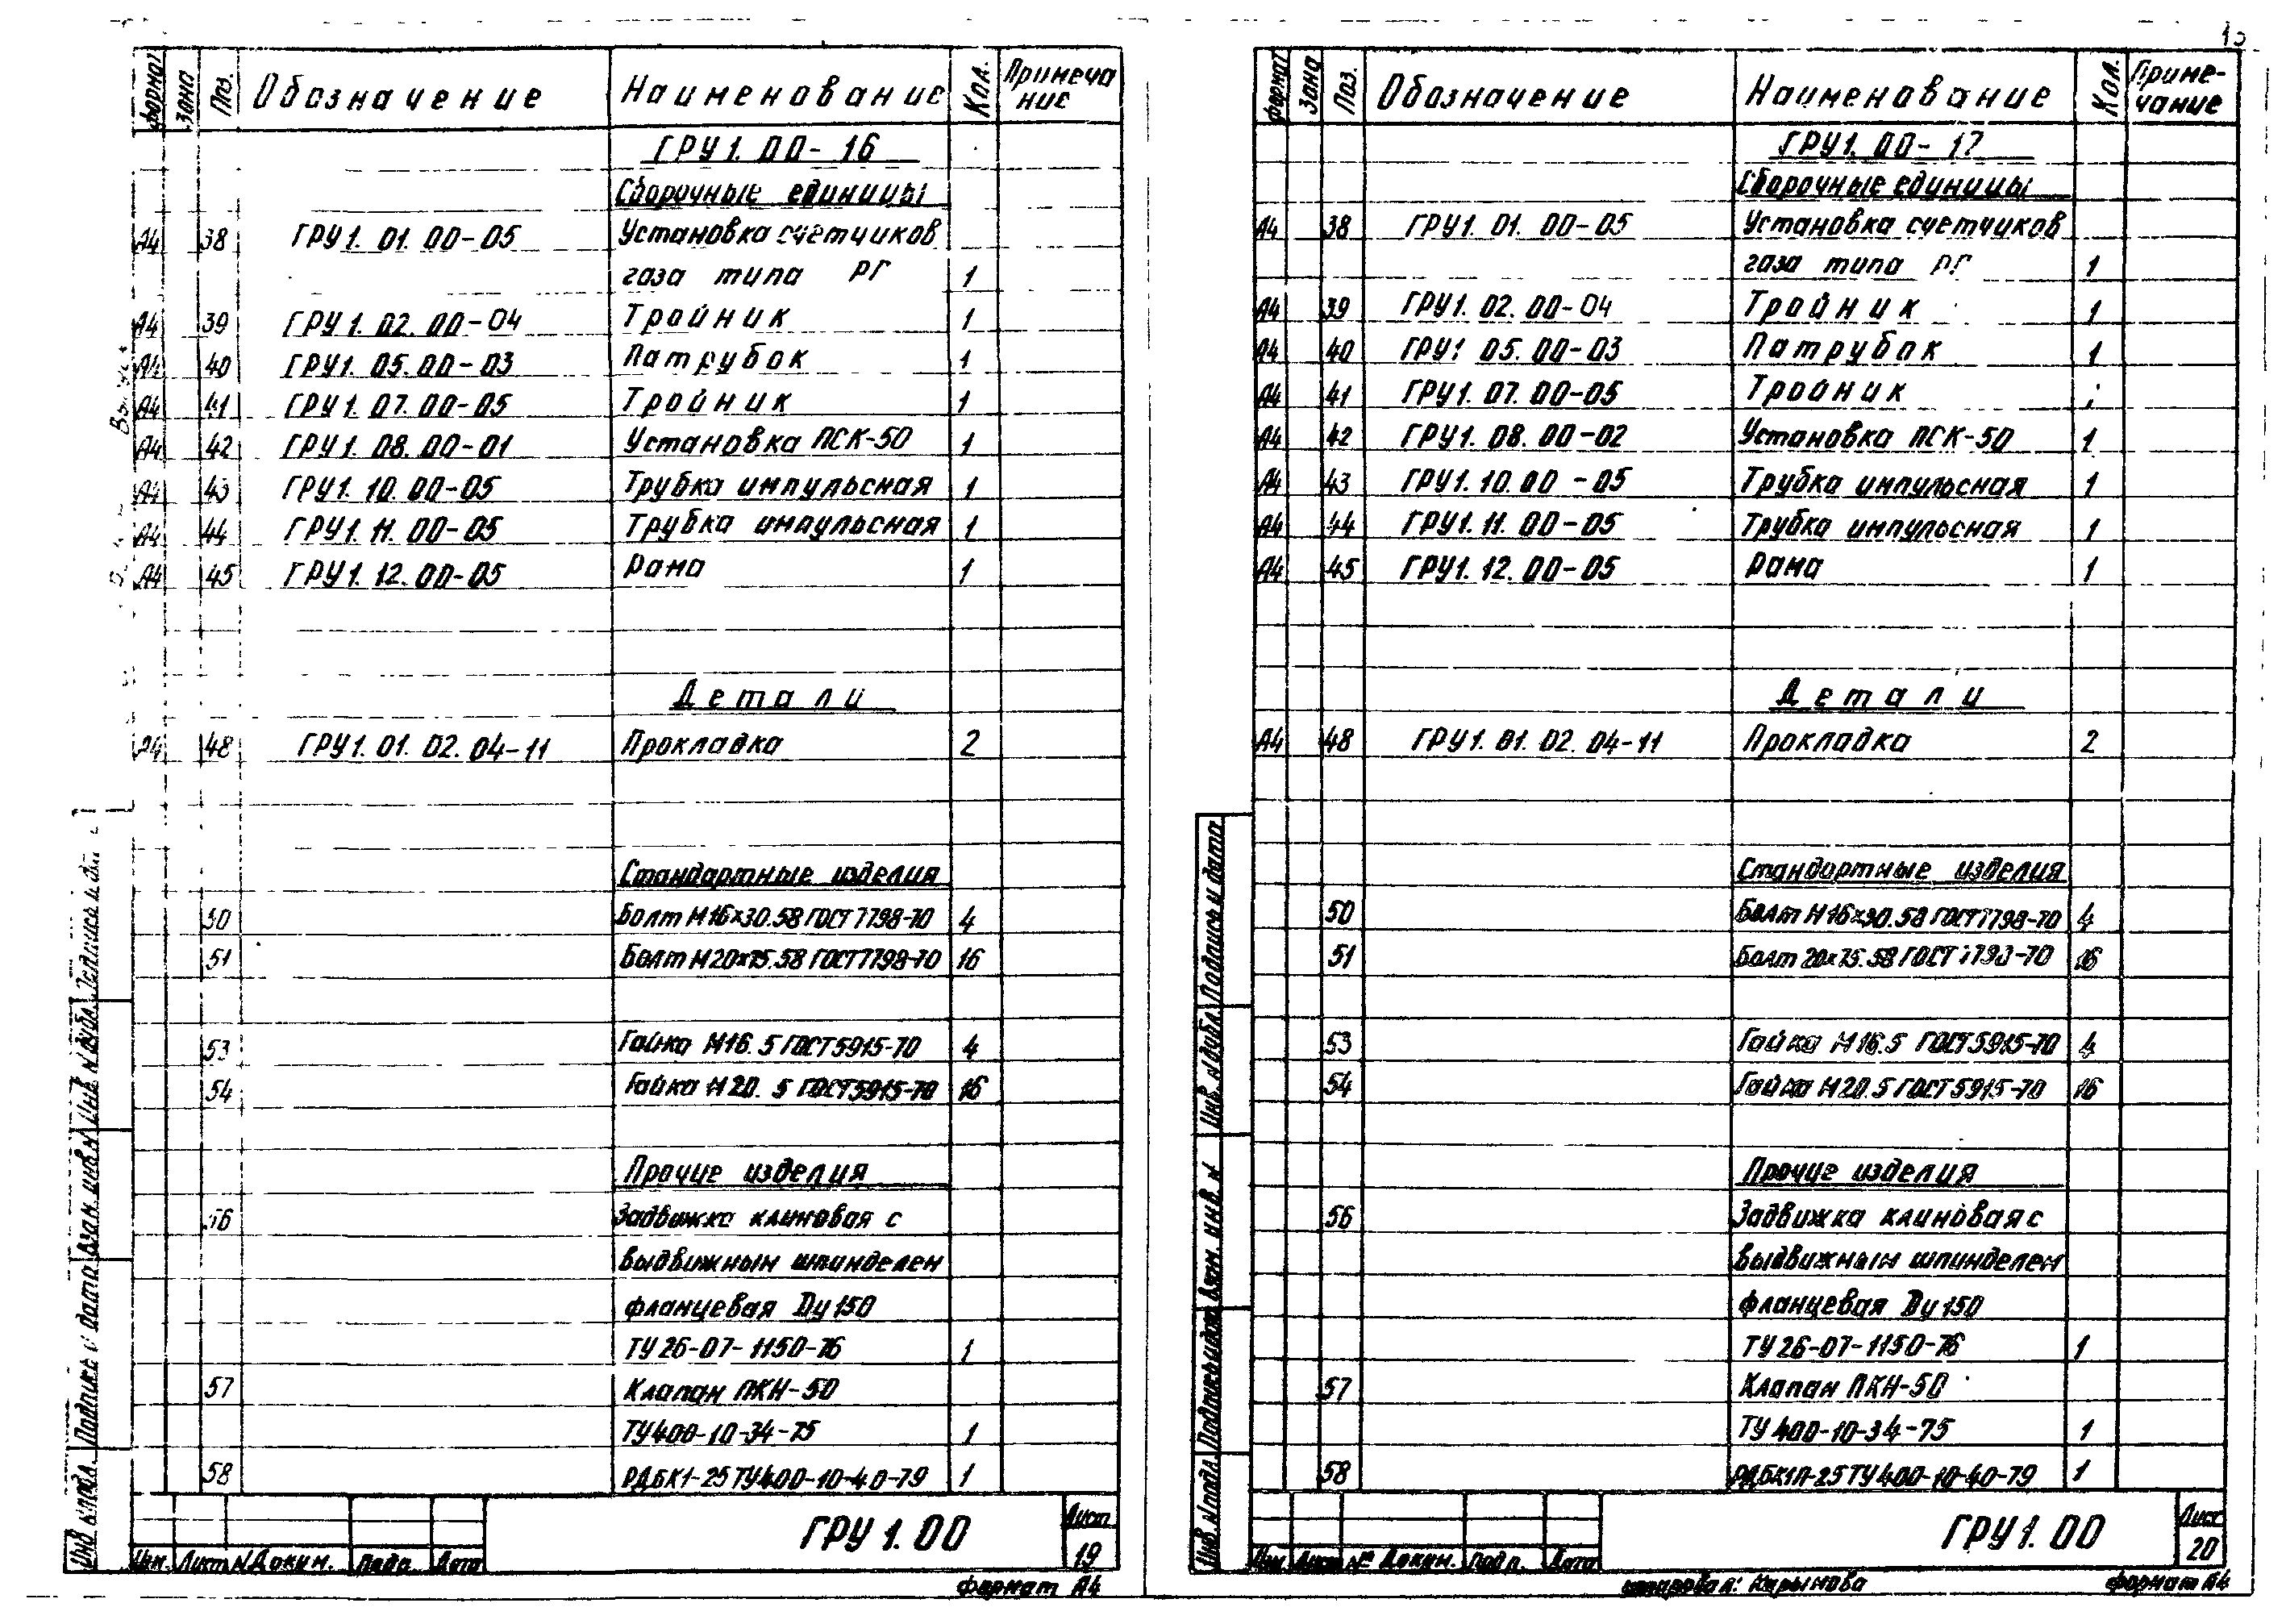 формат зона Поз. Обозначение Наименование Кол. Примеча
ние
ГРУ1.00-16
Сборочные единицы
А4 38 ГРУ1.01.00-05 Установка счетчиков
газа типа РГ 1
А4 39 ГРУ1.02.00-04 Тройник 1
А4 40 ГРУ1.05.00-03 Патрубок 1
А4 41 ГРУ1.07.00-05 Тройник 1
А4 42 ГРУ1.08.00-01 Установка ПСК-50 1
А4 43 ГРУ1.10.00-05 Трубка импульсная 1
А4 44 ГРУ1.11.00-05 Трубка импульсная 1
А4 45 ГРУ1.12.00-05 Рама 1
Детали
А4 48 ГРУ1.01.02.04-11 Прокладка 2
Стандартные изделия
50 Болт М16х30.58 ГОСТ7798-70 4
51 Болт М20х75.58 ГОСТ7798-70 16
53 Гайка М16.5 ГОСТ5915-70 4
54 Гайка М20.5 ГОСТ5915-70 16
Прочие изделия
56 Задвижка клиновая с
выдвижным шпинделем
фланцевая Dу150
ТУ26-07-1150-76 1
57 Клапан ПКН-50
ТУ400-10-34-75 1
58 РДБК1-25 ТУ400-10-40-79 1
Инв N подл. Подпись и дата Взам. инв. N Инв N дубл. Подпись и да
Изм. Лист N Докум. Подп. Дата
ГРУ1.00
Лист
19
формат А4
формат Зона Поз. Обозначение Наименование Кол. Приме-
чание
ГРУ1.00-17
Сборочные единицы
А4 38 ГРУ1.01.00-05 Установка счетчиков
газа типа РГ 1
А4 39 ГРУ1.02.00-04 Тройник 1
А4 40 ГРУ1 05.00-03 Патрубок 1
А4 41 ГРУ1.07.00-05 Тройник
А4 42 ГРУ1.08.00-02 Установка ПСК-50 1
А4 43 ГРУ1.10.00-05 Трубка импульсная 1
А4 44 ГРУ1.11.00-05 Трубка импульсная 1
А4 45 ГРУ1.12.00-05 Рама 1
Детали
А4 48 ГРУ1.01.02.04-11 Прокладка 2
Стандартные изделия
50 Болт М16х30.58 ГОСТ7798-70 4
51 Болт 20х75.58 ГОСТ7798-70 16
53 Гайка М16.5 ГОСТ5915-70 4
54 Гайка М20.5 ГОСТ5915-70 16
Прочие изделия
56 Задвижка клиновая с
выдвижным шпинделем
фланцевая Dу150
ТУ26-07-1150-76 1
57 Клапан ПКН-50
ТУ400-10-34-75 1
58 РДБК1П-25 ТУ400-10-40-79 1
Инв. N подл. Подпись и дата Взам. инв. N Инв. N дубл. Подпись и дата
Изм. Лист № Докум. Подп. Дата
ГРУ1.00
Лист
20
Карымова формат А4